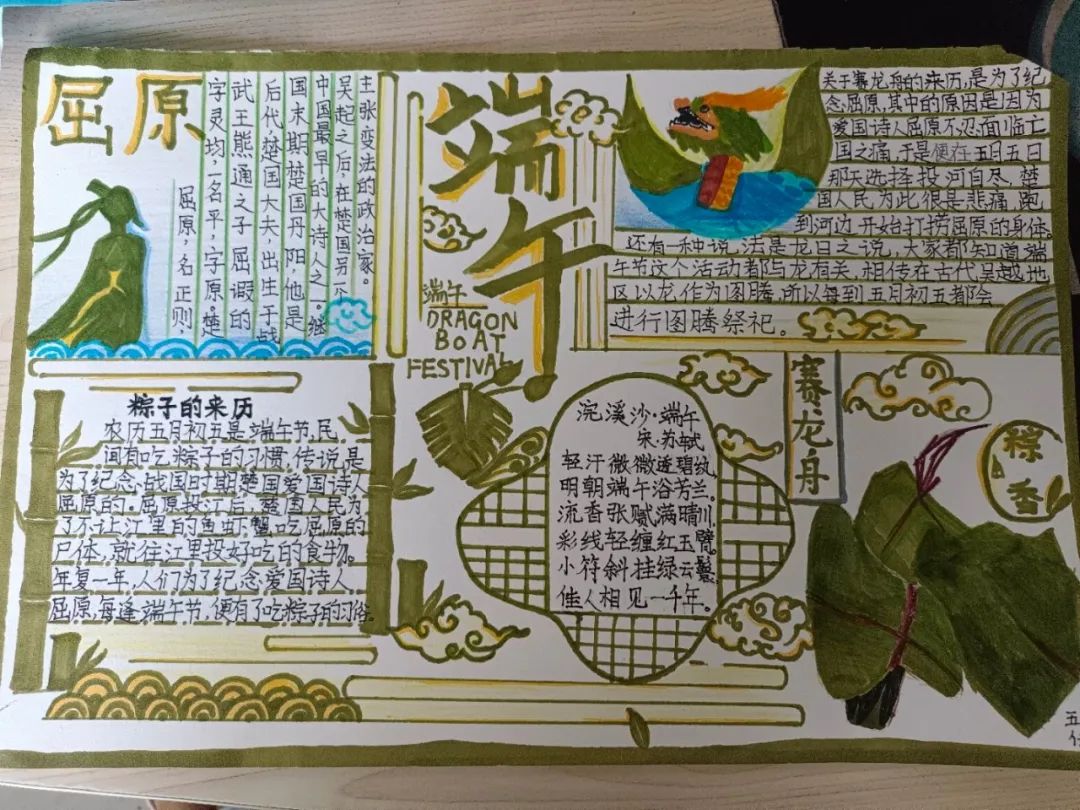 屈原
屈原，名正则，
字灵均，一名平，字原。楚
武王熊通之子屈瑕的
后代，楚国大夫，出生于战
国末期楚国丹阳，他是
中国最早的大诗人之一。继
吴起之后，在楚国另一个
主张变法的政治家。
端午
端午
DRAGON
BOAT
FESTIVAL
关于赛龙舟的来历，是为了纪
念屈原，其中的原因是因为
爱国诗人屈原不忍面临亡
国之痛，于是便在五月五日
那天选择投河自尽，楚
国人民为此很是悲痛，跑
到河边开始打捞屈原的身体
还有一种说法是龙日之说，大家都知道端
午节这个活动都与龙有关，相传在古代吴越地
区以龙作为图腾，所以每到五月初五都会
进行图腾祭祀。
粽子的来历
农历五月初五是端午节，民
间有吃粽子的习惯，传说是
为了纪念战国时期楚国爱国诗人
屈原的。屈原投江后，楚国人民为
了不让江里的鱼虾蟹吃屈原的
尸体，就往江里投好吃的食物。
年复一年，人们为了纪念爱国诗人
屈原，每逢端午节，便有了吃粽子的习俗。
浣溪沙·端午
宋·苏轼
轻汗微微透碧纨，
明朝端午浴芳兰。
流香张腻满晴川。
彩线轻缠红玉臂，
小符斜挂绿云鬟。
佳人相见一千年。
赛龙舟
粽香
五